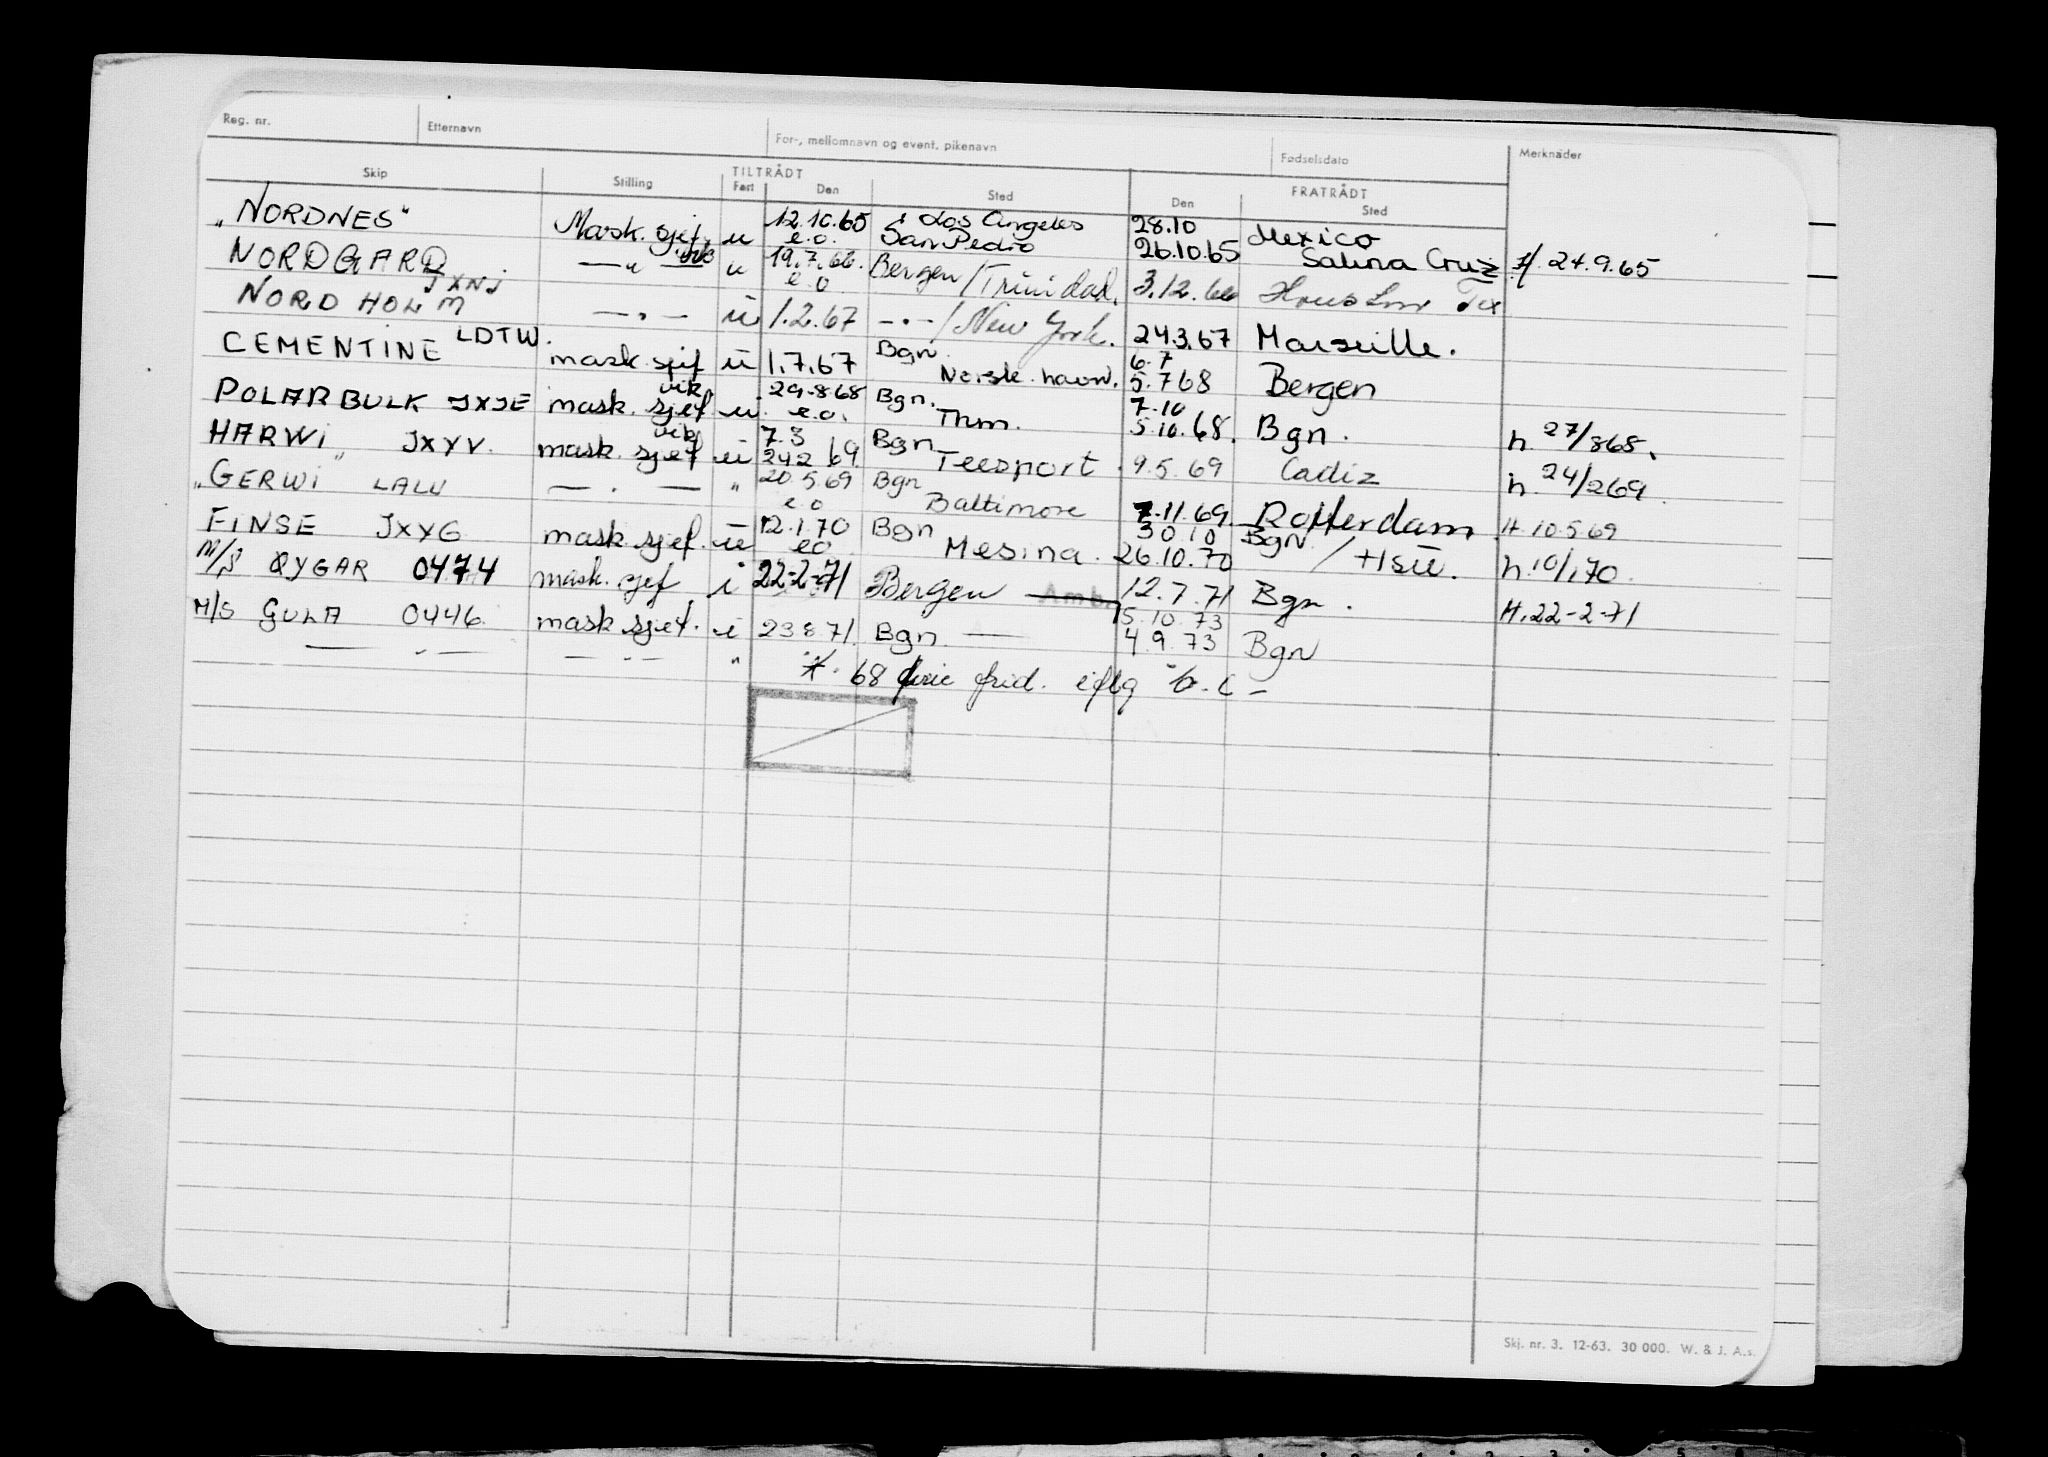 Reg. nr. Etternavn For-, mellomnavn og event. pikenavn Fødselsdato Merknader
Skip Stilling TILTRÅDT Fart Den Sted FRATRÅDT Den Sted
"NORDNES" Mask. sjef u 12.10.65 e.o. Los Angeles San Pedro 28.10 26.10.65 Mexico Salina Cruz 24.9.65
NORDGARD JXNJ — " — vik u 19.7.66. e.o Bergen / Trinidad. 3.12.66 Houston Tex
NORDHOLM — " — u 1.2.67 — " — / New York. 24.3.67 Marseille.
CEMENTINE LDTW. mask. sjef u 1.7.67 Bgn. Norsk. havn. 6.7 5.768 Bergen
POLARBULK JXJE mask. sjef vik u. 29.868 e.o. Bgn. Thm. 7.10 5.10.68. Bgn. h. 27/868.
HARWI JXYV. mask. sjef vik u 7.3 242 69. Bgn Teesport. 9.5.69 Cadiz h. 24/269.
"GERWI" LALU — " — " 20.5.69 e.o Bgn Baltimore 7.11.69 Rotterdam H. 10.569
FINSE JXYG mask. sjef. u 12.1.70 eo Bgn Mesina. 30 10 26.10.70 Bgn / Hsu. h. 10/170.
M/S QYGAR 0474 mask. sjef i 22-2-71 Bergen — Amb. 12.7.71 Bgn. H. 22-2-71
M/S GULA 0446 mask. sjef. i 23871. Bgn — 15.10.73 4.9.73 Bgn
— " — — " — " 68 frid.
Skj. nr. 3. 12-63. 30 000. W. & J. A.s.